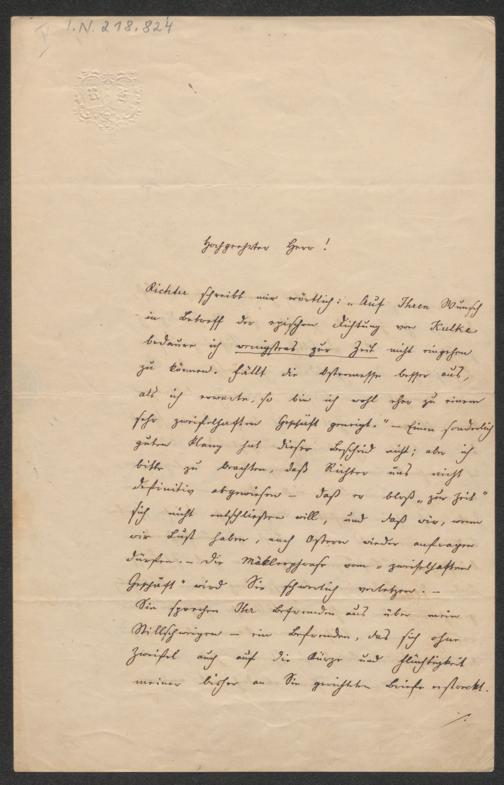 I.N. 218.824
Hochgeehrter Herr!
Richter schreibt mir wörtlich: „Auf Ihren Wunsch
in Betreff der epischen Dichtung von Kulke
bedaure ich wenigstens zur Zeit nicht eingehen
zu können. Fällt die Ostermesse besser aus,
als ich erwarte, so bin ich wohl eher zu einem
sehr zweifelhaften Geschäft geneigt." – Einen sonderlich
guten Klang hat dieser Bescheid nicht; aber ich
bitte zu beachten, daß Richter uns nicht
definitiv abgewiesen – daß er bloß „zur Zeit"
sich nicht entschließen will, und daß wir, wenn
wir Lust haben, nach Ostern wieder anfragen
dürfen. – Die Mäklerphrase vom „zweifelhaften
Geschäft" wird Sie schwerlich verletzen. –
Sie sprechen Ihr Befremden aus über mein
Stillschweigen – ein Befremden, das sich ohne
Zweifel auch auf die Kürze und Flüchtigkeit
meiner bisher an Sie gerichteten Briefe erstreckt.